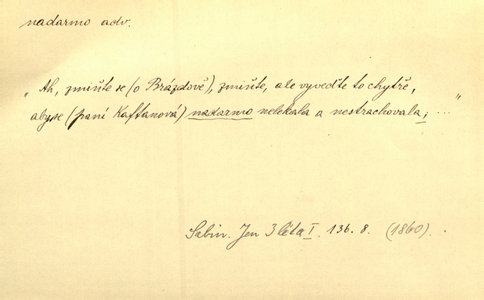 nadarmo adv.
„Ah, zmiňte se (o Brázdově), zmiňte, ale vyveďte to chytře,
aby se (paní Kaftanová) nadarmo nelekala a nestrachovala; ..."
Sabin. Jen 3 léta I. 136. 8. (1860).